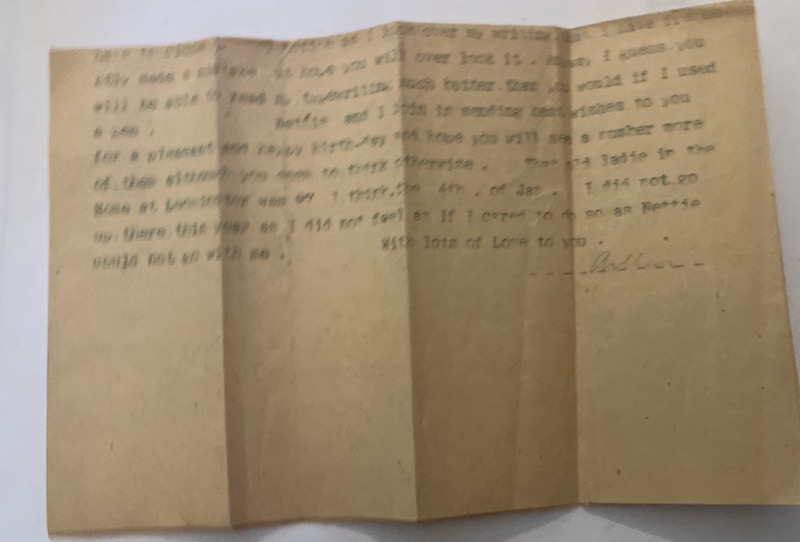 have to close . I notice as I look over my writing that I have
made a mistake , I hope you will over look it . Anyway I guess you
will be able to read my typewriting much better than you would if I used
a pen . Bettie and I join in sending best wishes to you
for a pleasant and happy birthday and hope you will see a number more
of them although you seem to think otherwise . That old ladie in the
Home at was I think,the 4th . of Jan . I did not go
up there this year as I did not feel as if I cared to go as Bettie
would not go with me .
With lots of Love to you .